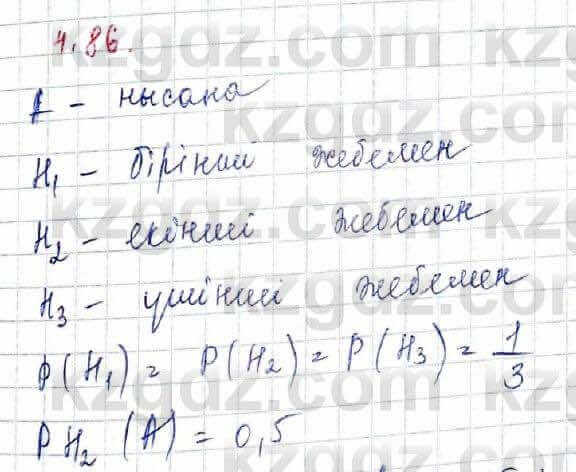 4.86.
A - нысана
H₁ - бірінші жебемен
H₂ - екінші жебемен
H₃ - үшінші жебемен
P(H₁) = P(H₂) = P(H₃) = 1/3
P H₂ (A) = 0,5